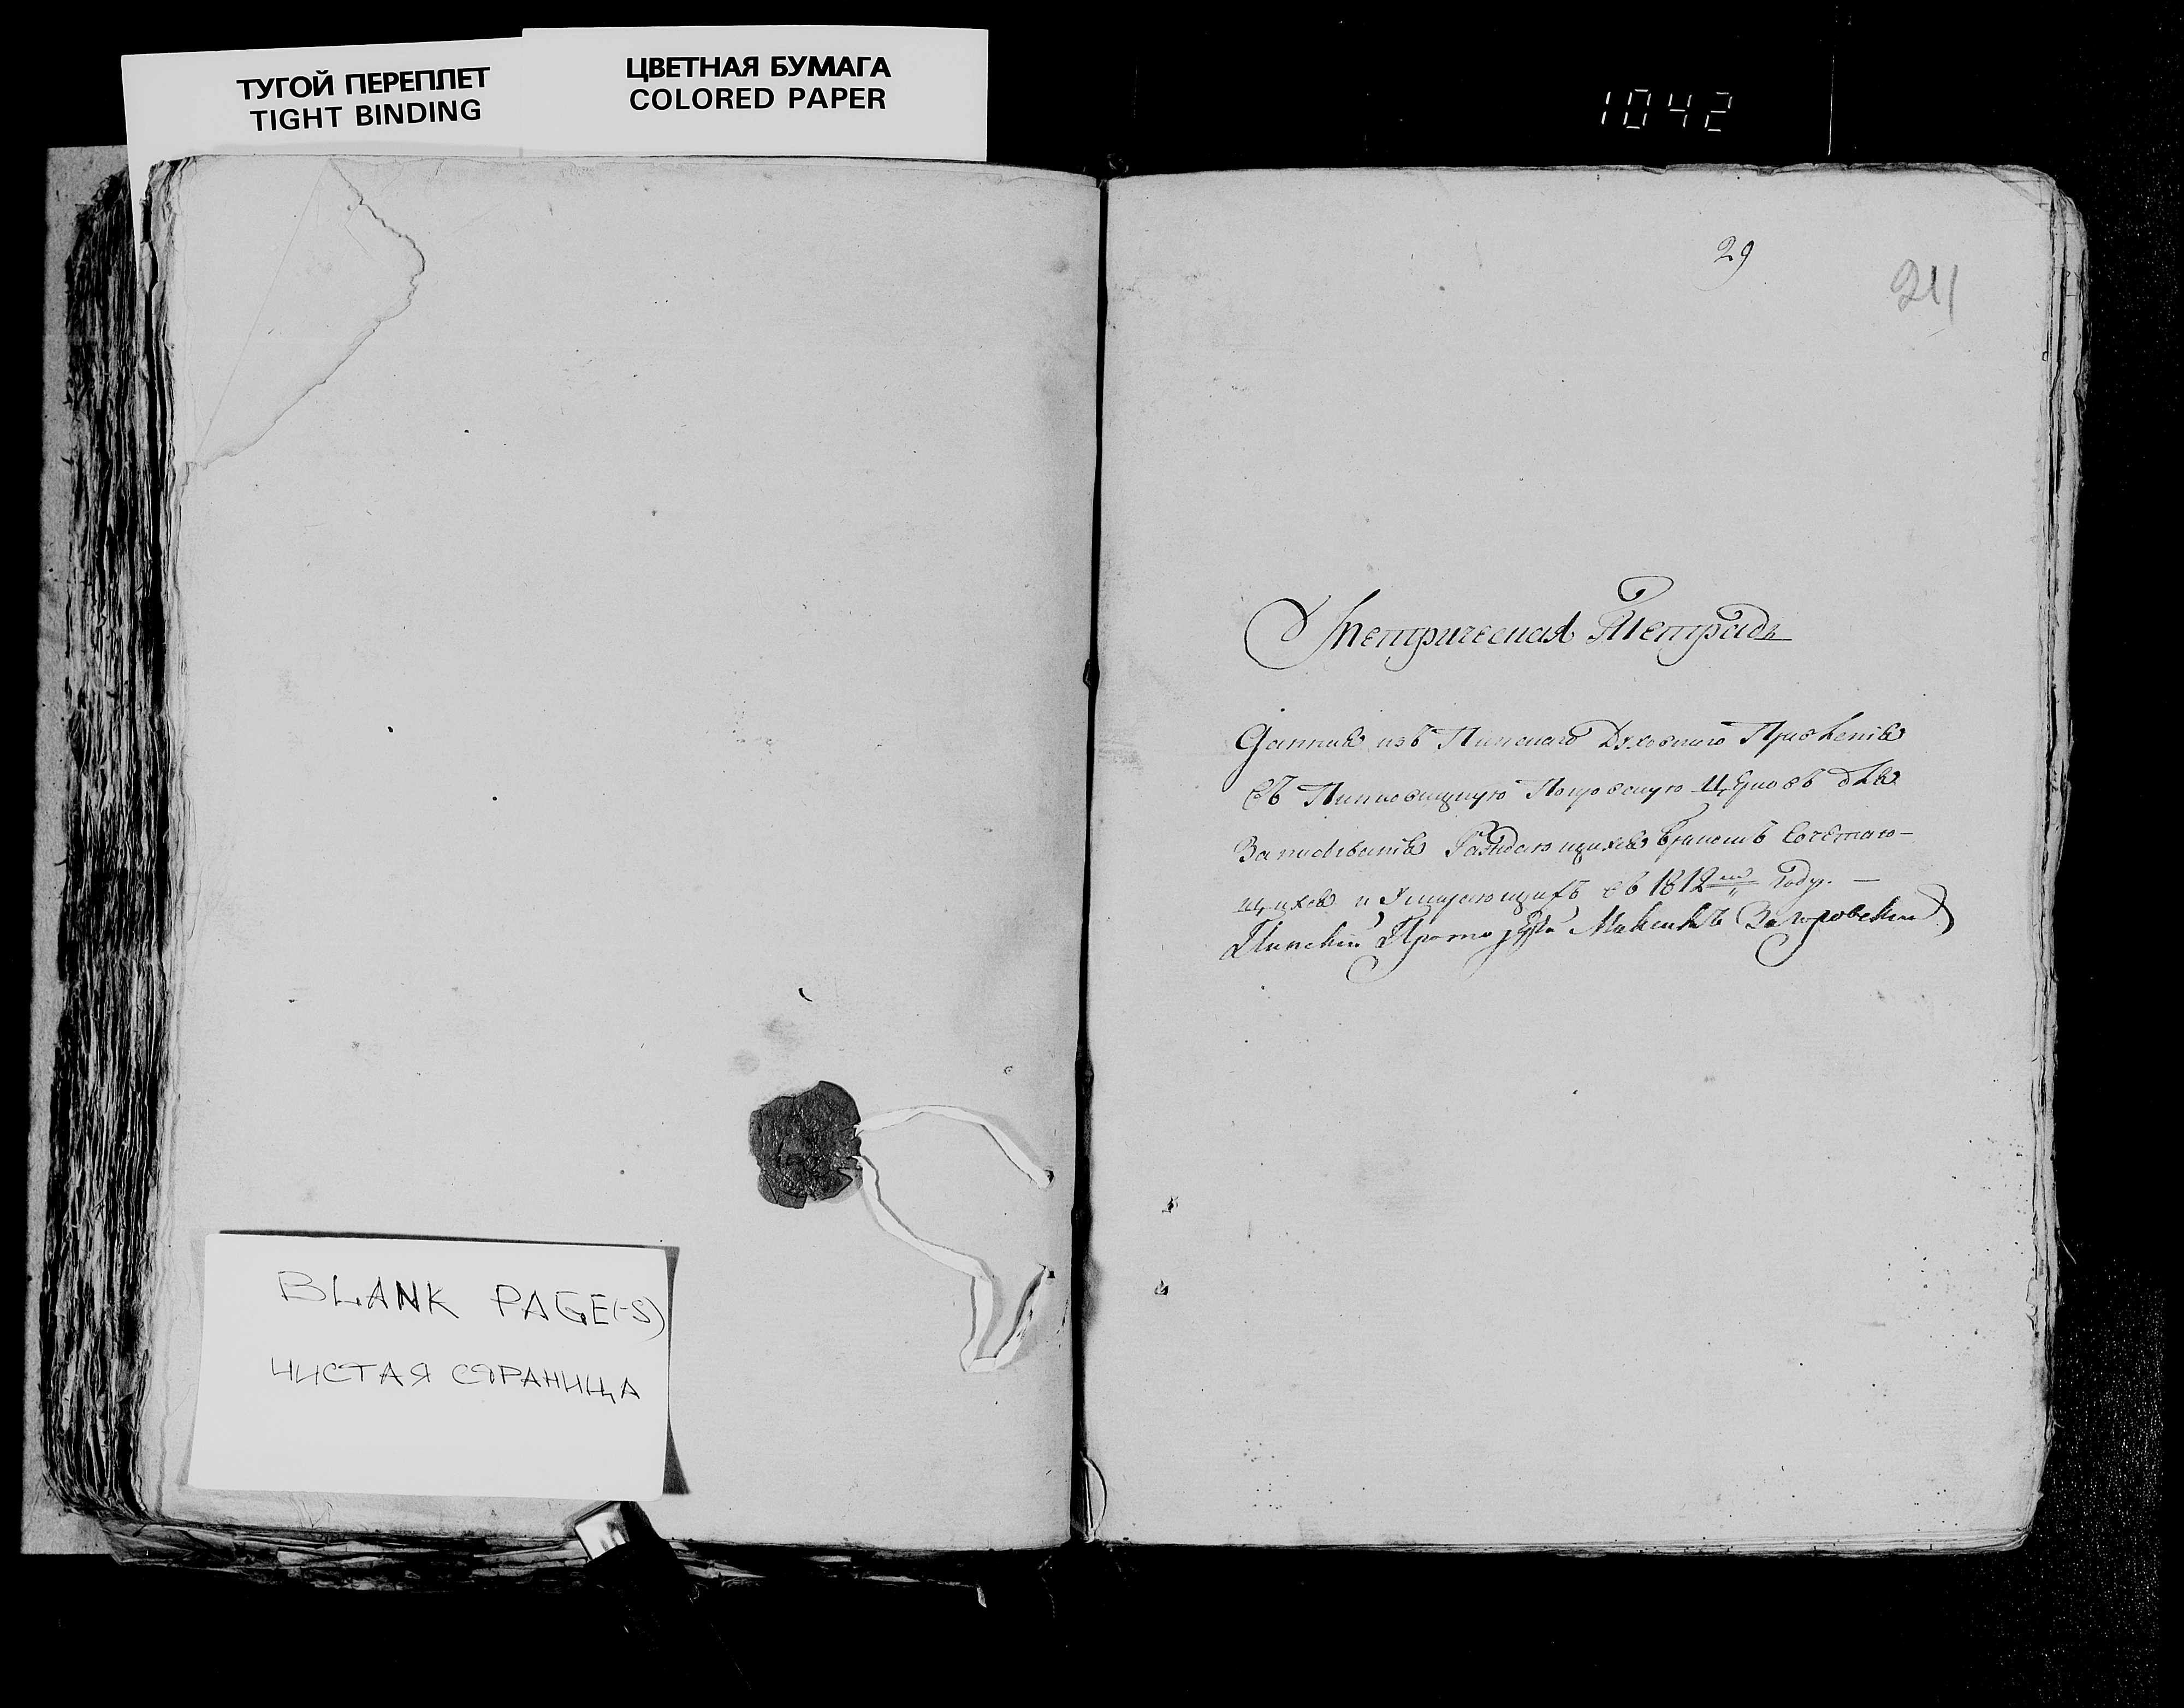 ТУГОЙ ПЕРЕПЛЕТ
TIGHT BINDING
ЦВЕТНАЯ БУМАГА
COLORED PAPER
1042
BLANK PAGE(-S)
ЧИСТАЯ СТРАНИЦА
29
211
Метрическая Тетрадь
Данная изъ Пинскаго Духовнаго Правленія
въ Покровскую Церковь для
Записыванія Раждающихся Бракомъ Сочетаю-
щихся и Умирающихъ въ 1812 Году. —
Пинскій Протоіерей Загоровскій